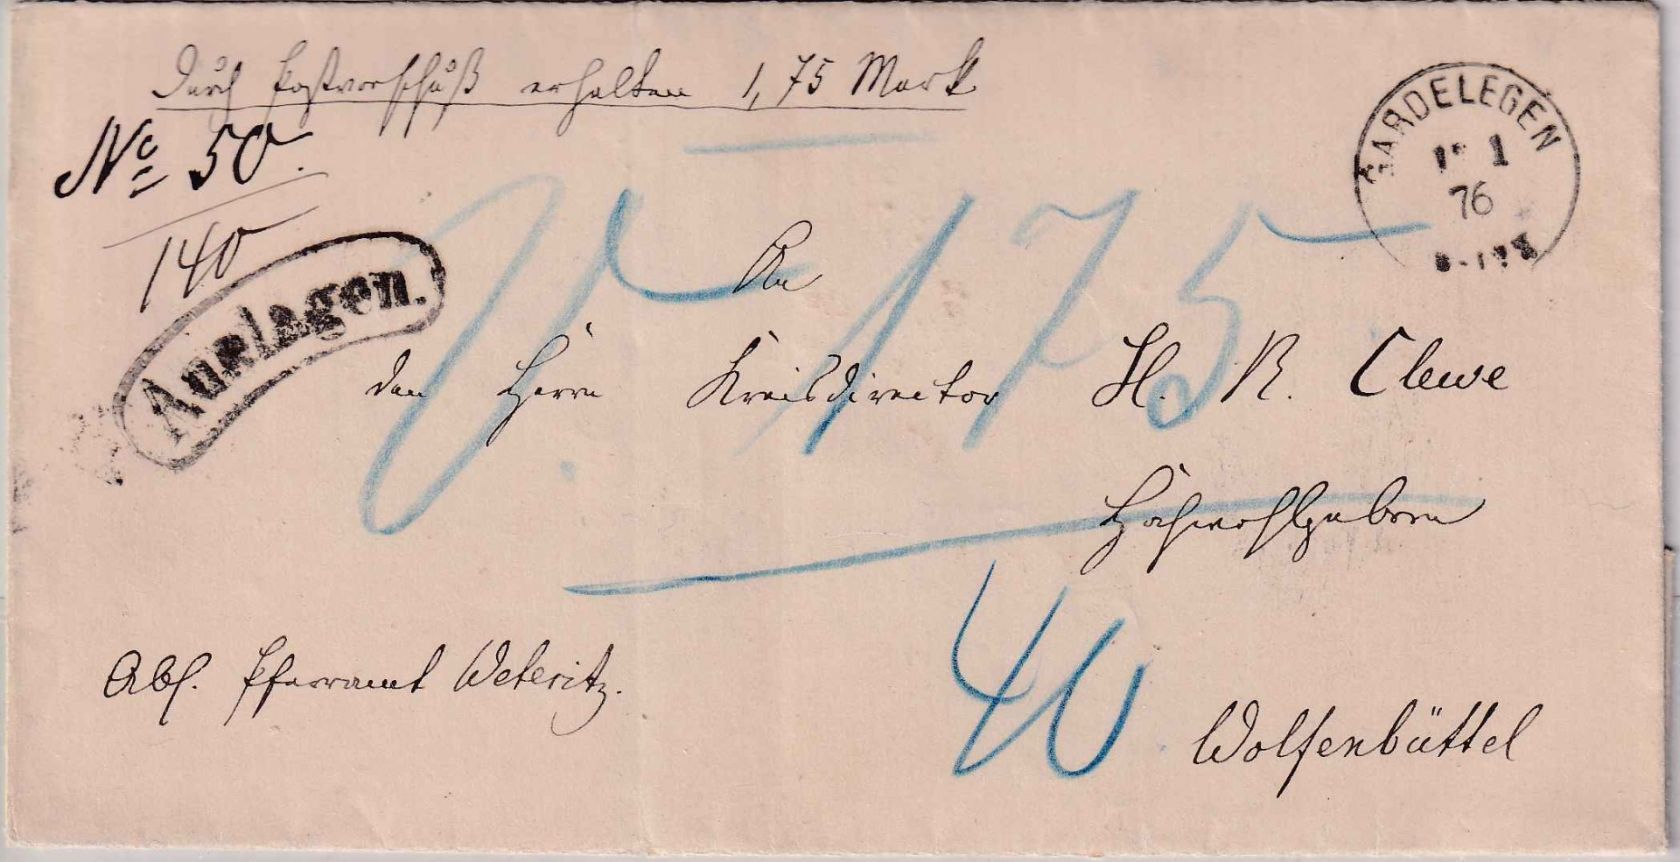 Durch Postvorschuß erhalten 1,75 Mark
No 50.
140
Auslagen.
GARDELEGEN
1
76
V. 175
An
den Herrn Kreisdirector H. R. Clewe
Hochwohlgeboren
40
Abs. Pfarramt Weteritz.
Wolfenbüttel